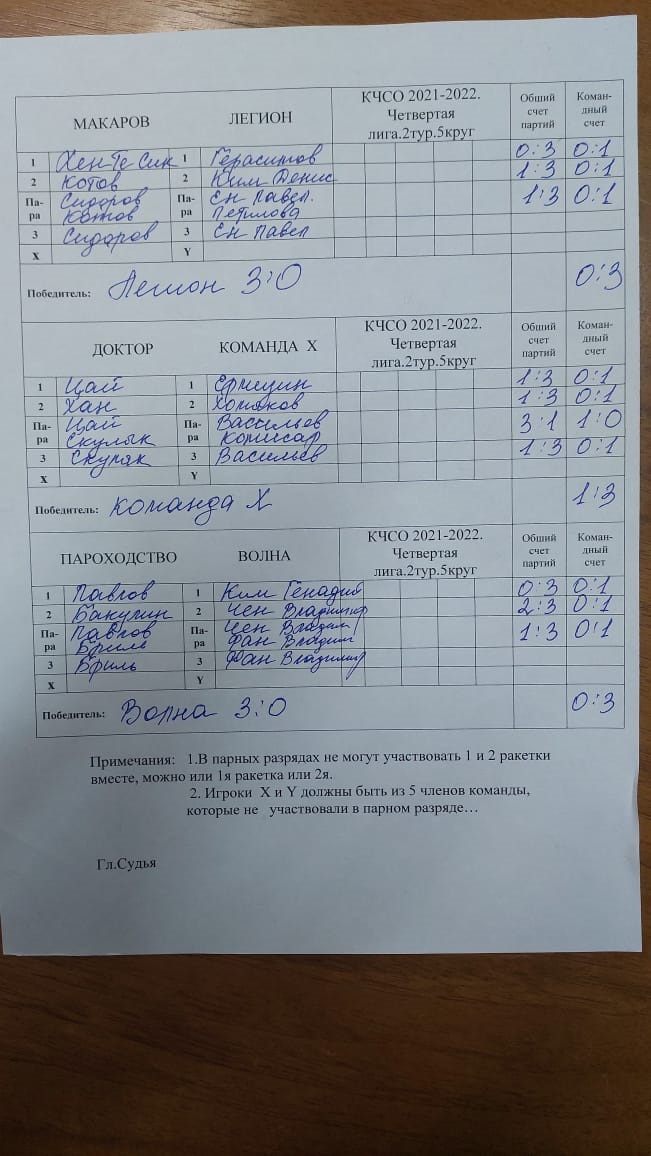 МАКАРОВ ЛЕГИОН КЧСО 2021-2022. Четвертая лига.2тур.5круг Общий счет партий Коман-дный счет
1 Хен Те Сик 1 Герасимов 0:3 0:1
2 Котов 2 Ким Денис 1:3 0:1
Па-ра Сидоров Па-ра Ен Павел. 1:3 0:1
Котов
3 Сидоров 3 Ен Павел
X Y
Победитель: Легион 3:0 0:3
ДОКТОР КОМАНДА X КЧСО 2021-2022. Четвертая лига.2тур.5круг Общий счет партий Коман-дный счет
1 Цай 1 1:3 0:1
2 Хан 2 Хомяков 1:3 0:1
Па-ра Цай Па-ра Васильев 3:1 1:0
Комисар
3 3 Васильев 1:3 0:1
X Y
Победитель: команда X 1:3
ПАРОХОДСТВО ВОЛНА КЧСО 2021-2022. Четвертая лига.2тур.5круг Общий счет партий Коман-дный счет
1 Павлов 1 Ким Генадий 0:3 0:1
2 Бакулин 2 Чен Владимир 2:3 0:1
Па-ра Павлов Па-ра Чен Владим 1:3 0:1
Бриль Фан Владим
3 Бриль 3 Фан Владимир
X Y
Победитель: Волна 3:0 0:3
Примечания: 1.В парных разрядах не могут участвовать 1 и 2 ракетки
вместе, можно или 1я ракетка или 2я.
2. Игроки X и Y должны быть из 5 членов команды,
которые не участвовали в парном разряде…
Гл.Судья